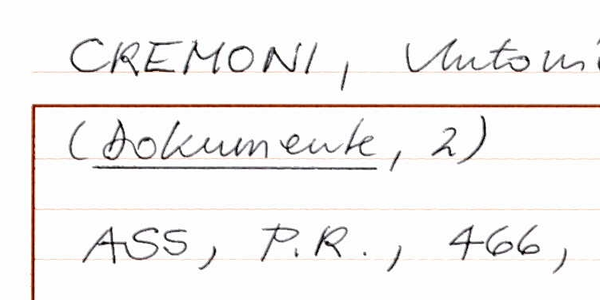 CREMONI, Antoni
(Dokumente, 2)
ASS, P.R., 466,